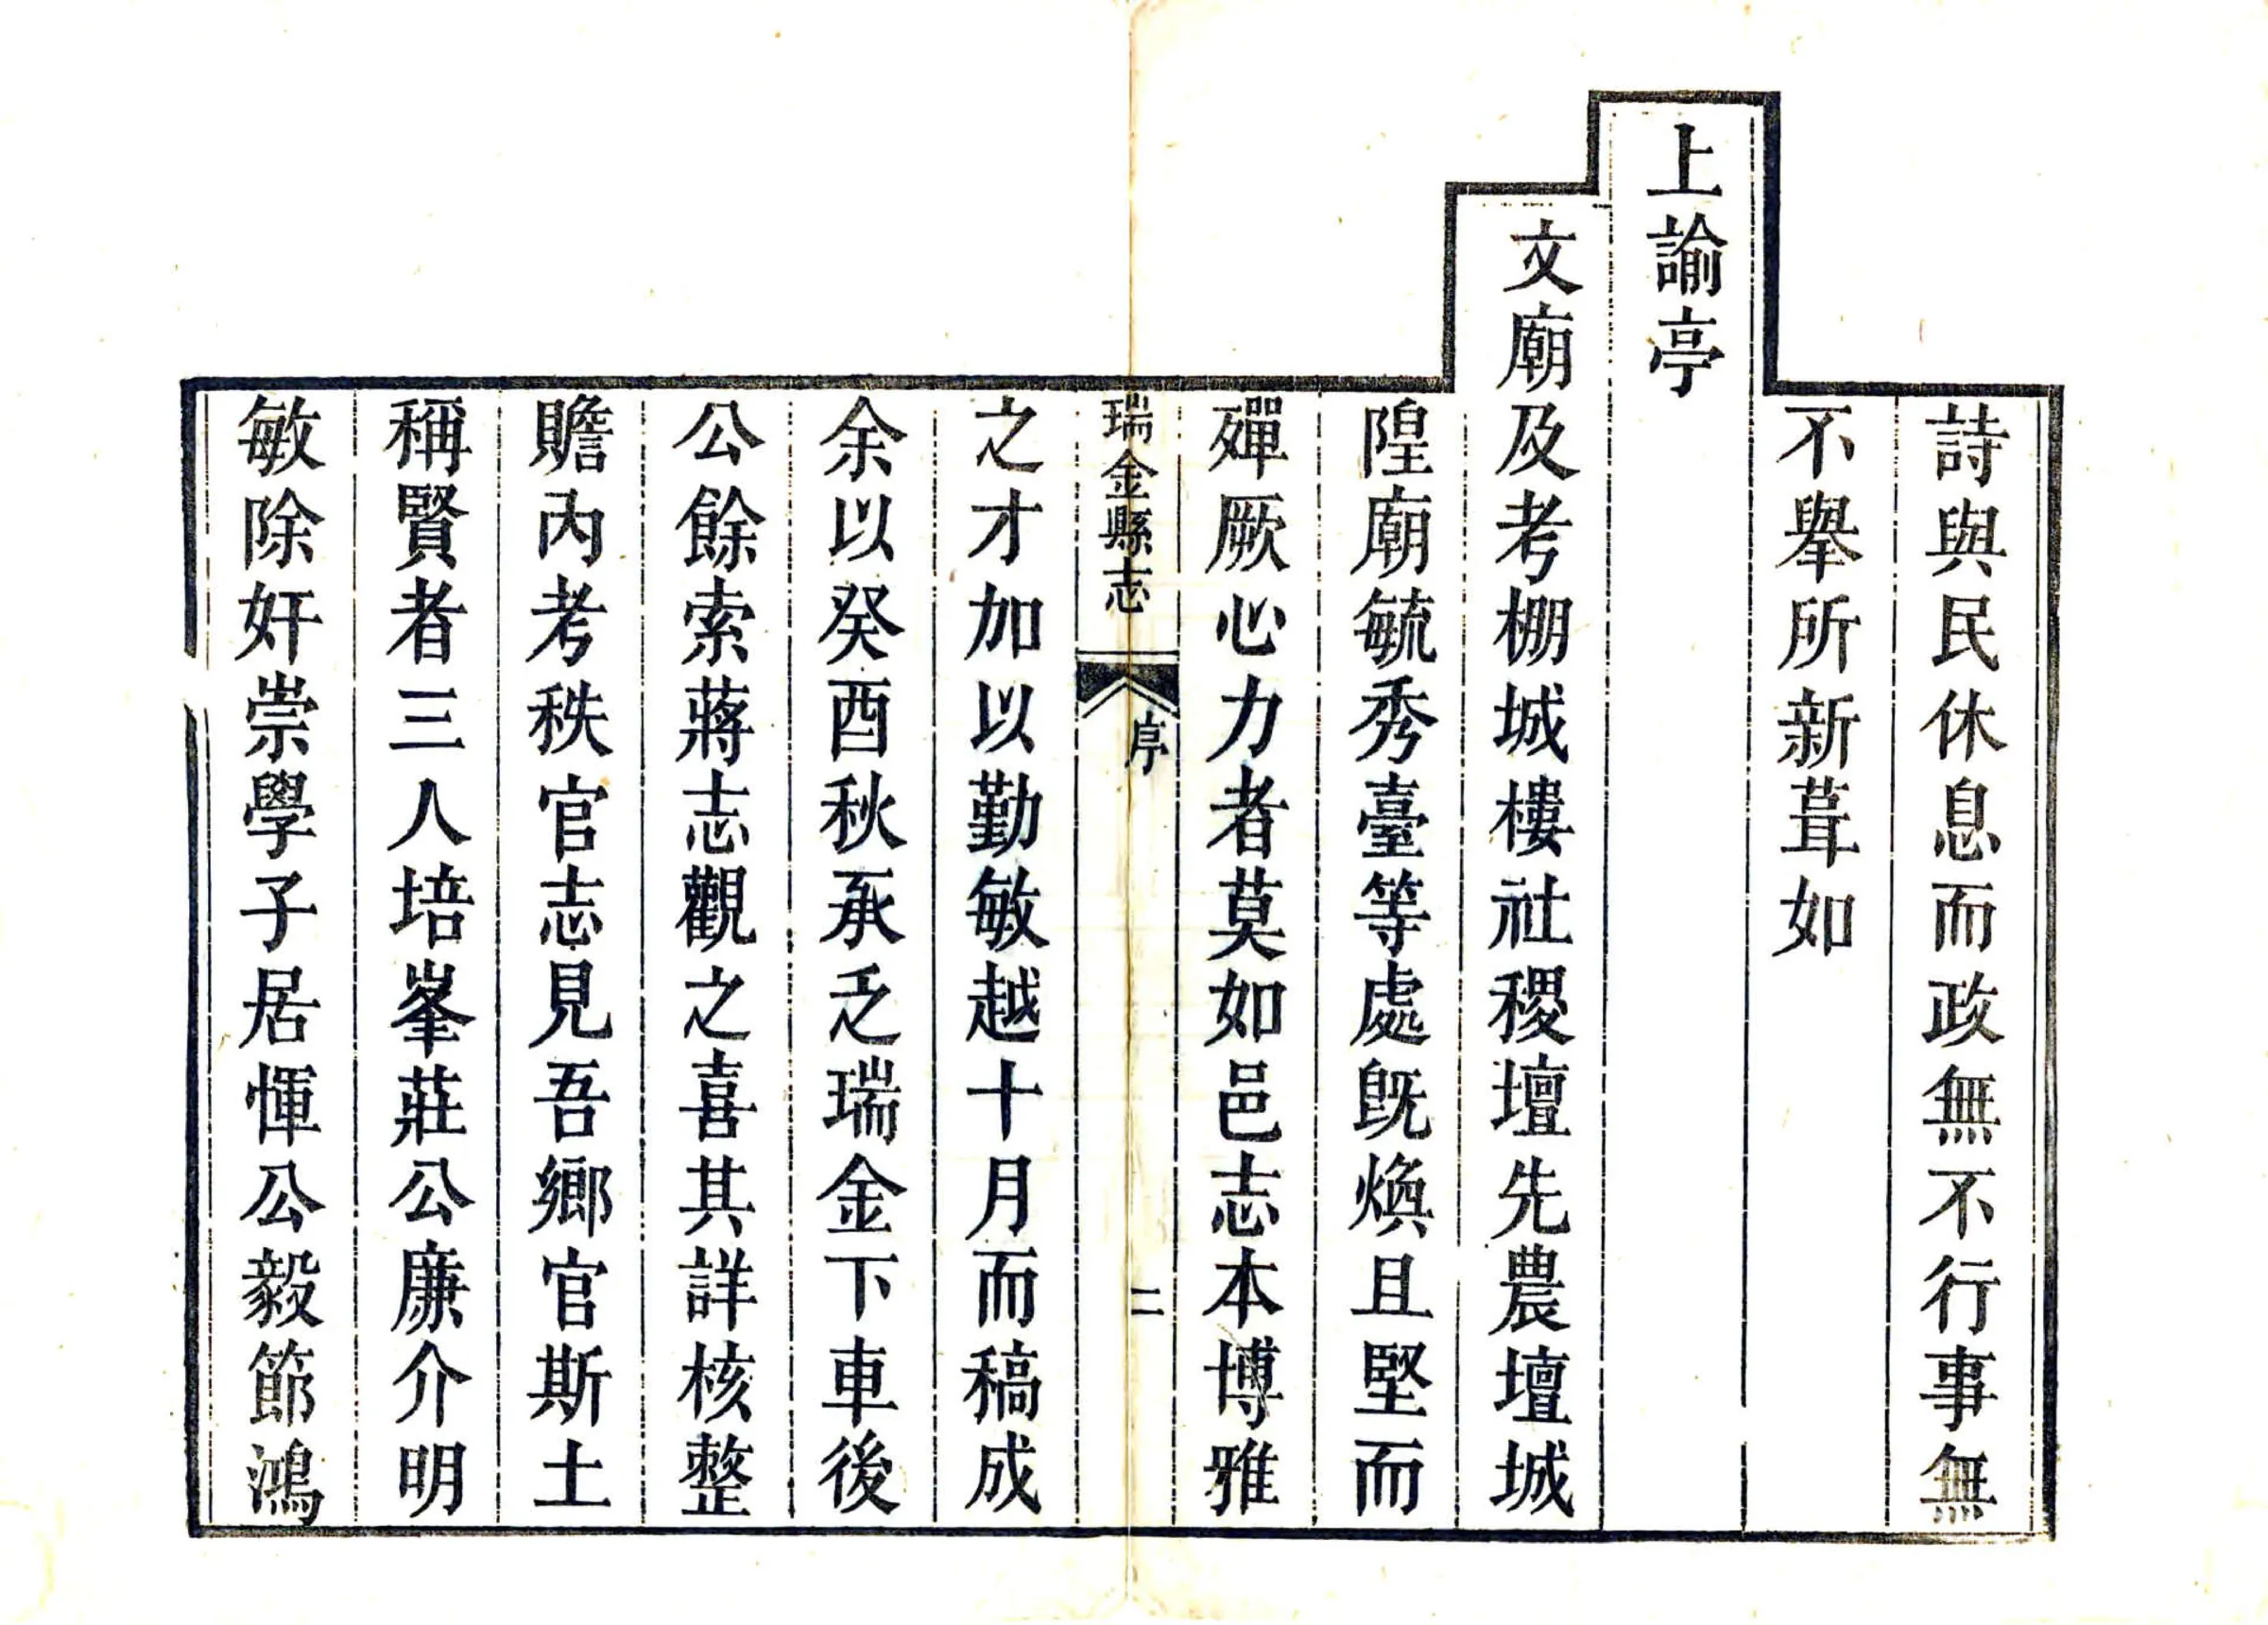 詩與民休息而政無不行事無
不舉所新葺如
上諭亭
文廟及考棚城樓社稷壇先農壇城
隍廟毓秀臺等處既煥且堅而
殫厥心力者莫如邑志本博雅
瑞金縣志 序 二
之才加以勤敏越十月而稿成
余以癸酉秋承乏瑞金下車後
公餘索蔣志觀之喜其詳核整
贍內考秩官志見吾鄉官斯土
稱賢者三人培峯莊公廉介明
敏除奸崇學子居惲公毅節鴻